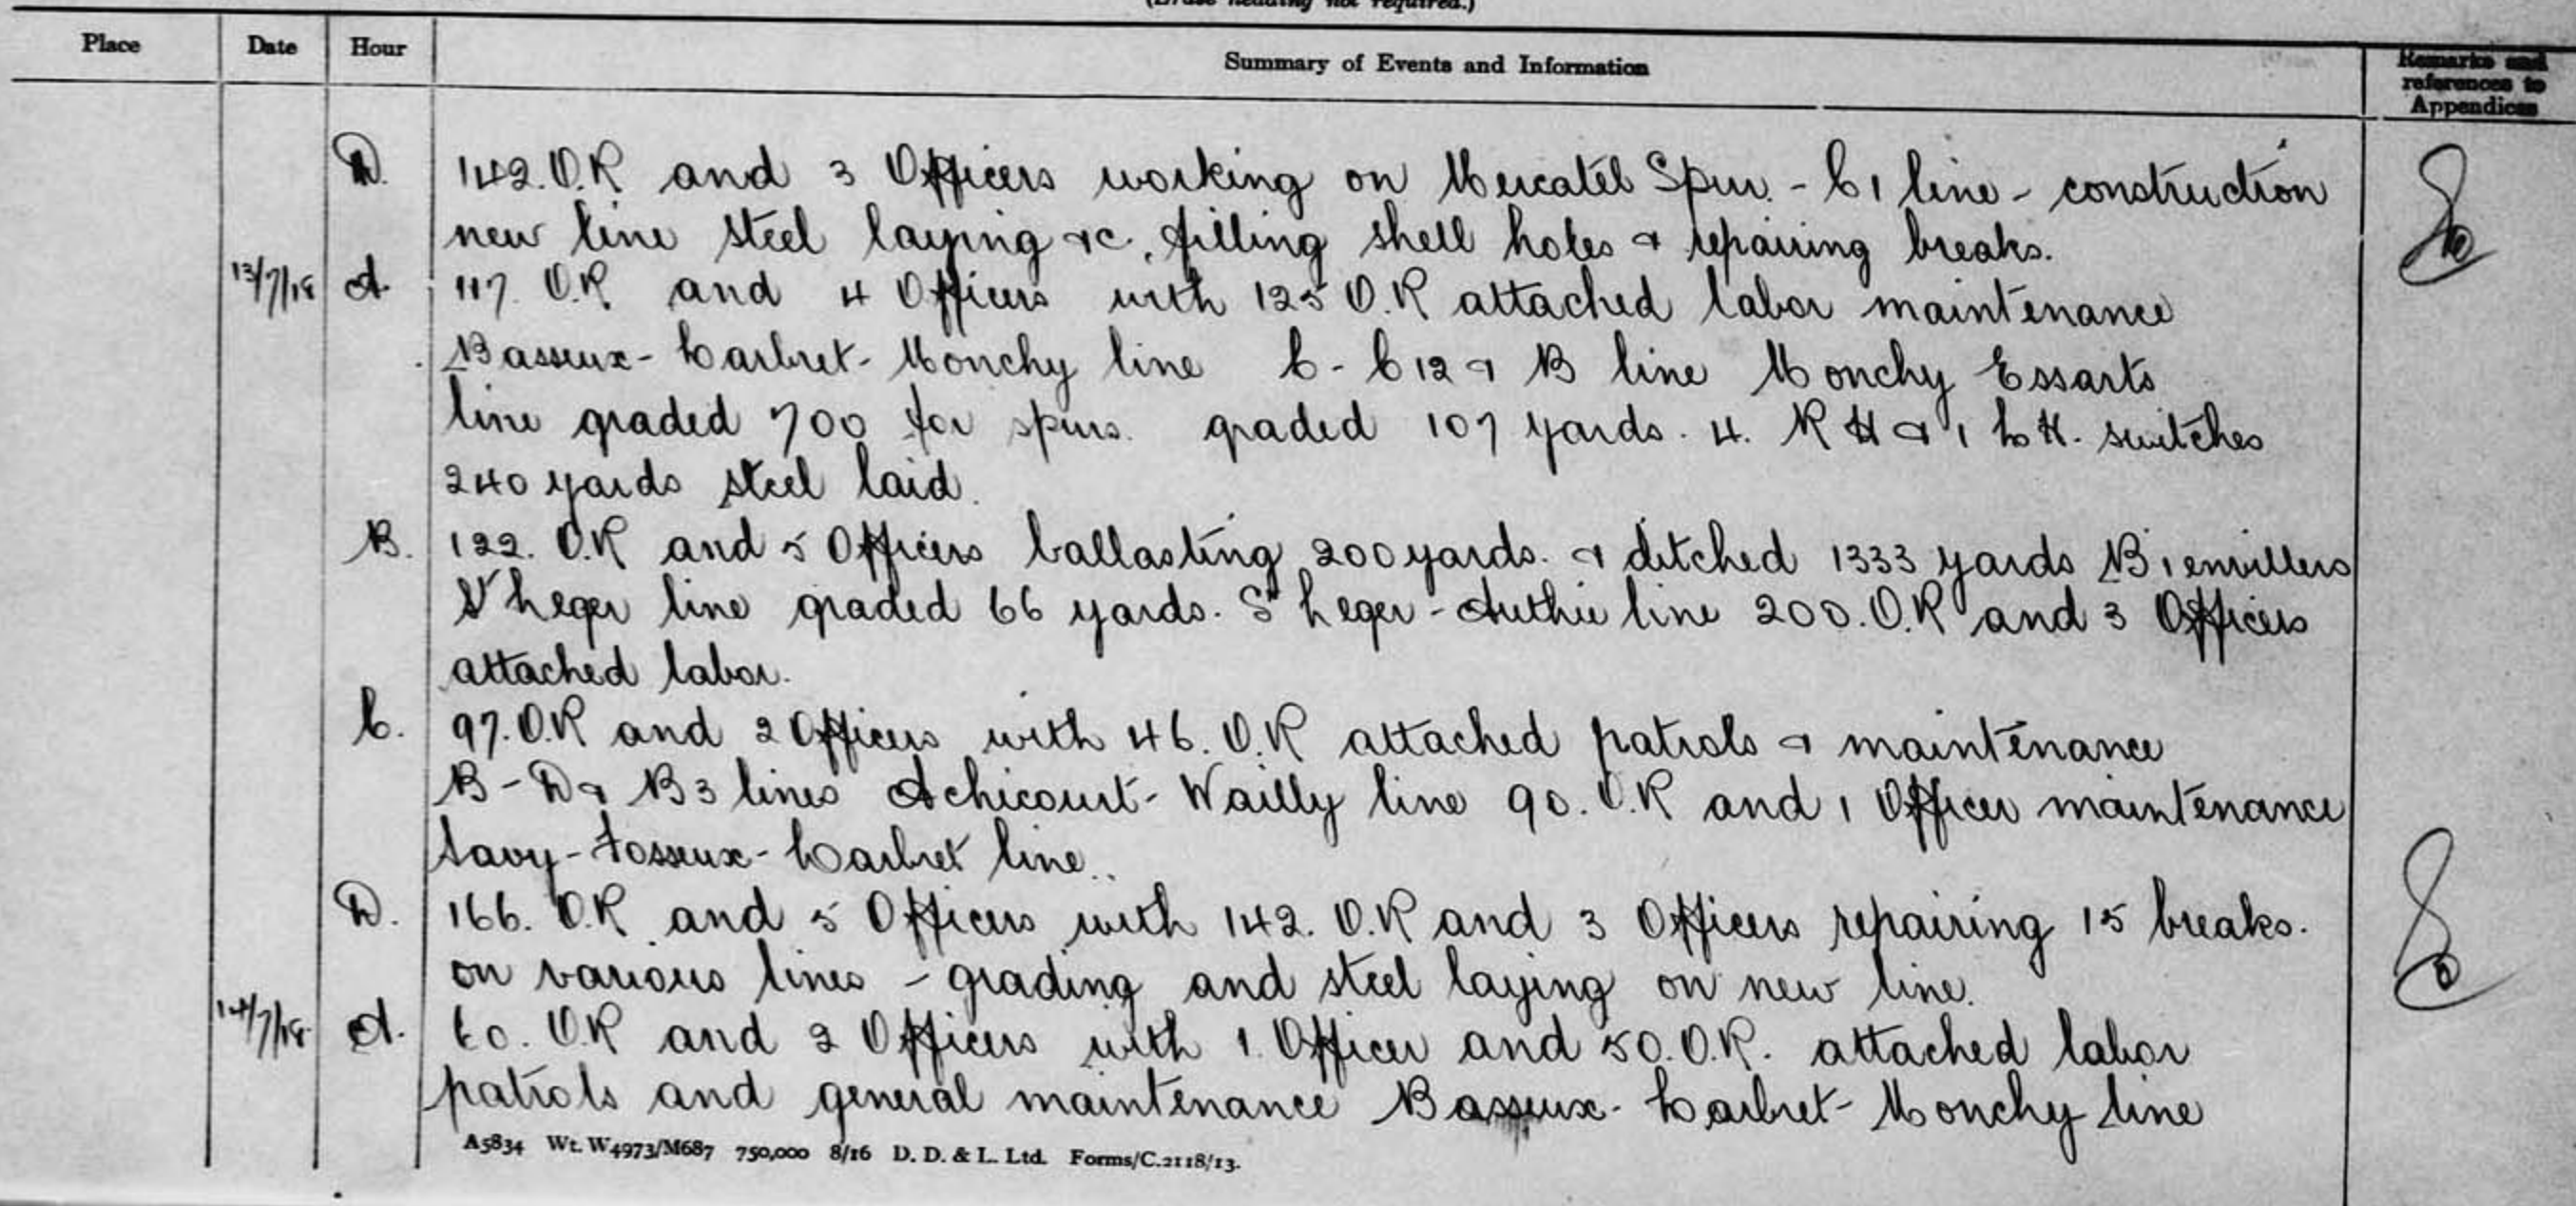 (Erase heading not required.)
Place Date Hour Summary of Events and Information Remarks and references to Appendices
D. 142. O.R and 3 Officers working on Mercatel Spur. - C1 line - construction
new line steel laying &c, filling shell holes & repairing breaks.
13/7/18 A. 117. O.R and 4 Officers with 125 O.R attached labor maintenance
Basseux - Larbret - Monchy line C - C12 & B line Monchy Essarts
line graded 700 for spurs. graded 107 yards. 4. R H & 1 L H. switches
240 yards steel laid.
B. 122. O.R and 5 Officers ballasting 200 yards. & ditched 1333 yards Bienvillers
St Leger line graded 66 yards. St Leger - Authie line 200. O.R and 3 Officers
attached labor.
C. 97. O.R and 2 Officers with 46. O.R attached patrols & maintenance
B - D & B3 lines Achicourt - Wailly line 90. O.R and 1 Officer maintenance
Savy - Fosseux - Larbret line.
D. 166. O.R and 5 Officers with 142. O.R and 3 Officers repairing 15 breaks.
on various lines - grading and steel laying on new line.
14/7/18 A. 60. O.R and 2 Officers with 1. Officer and 50. O.R. attached labor
patrols and general maintenance Basseux - Larbret - Monchy line
A5834 Wt. W4973/M687 750,000 8/16 D. D. & L. Ltd. Forms/C.2118/13.